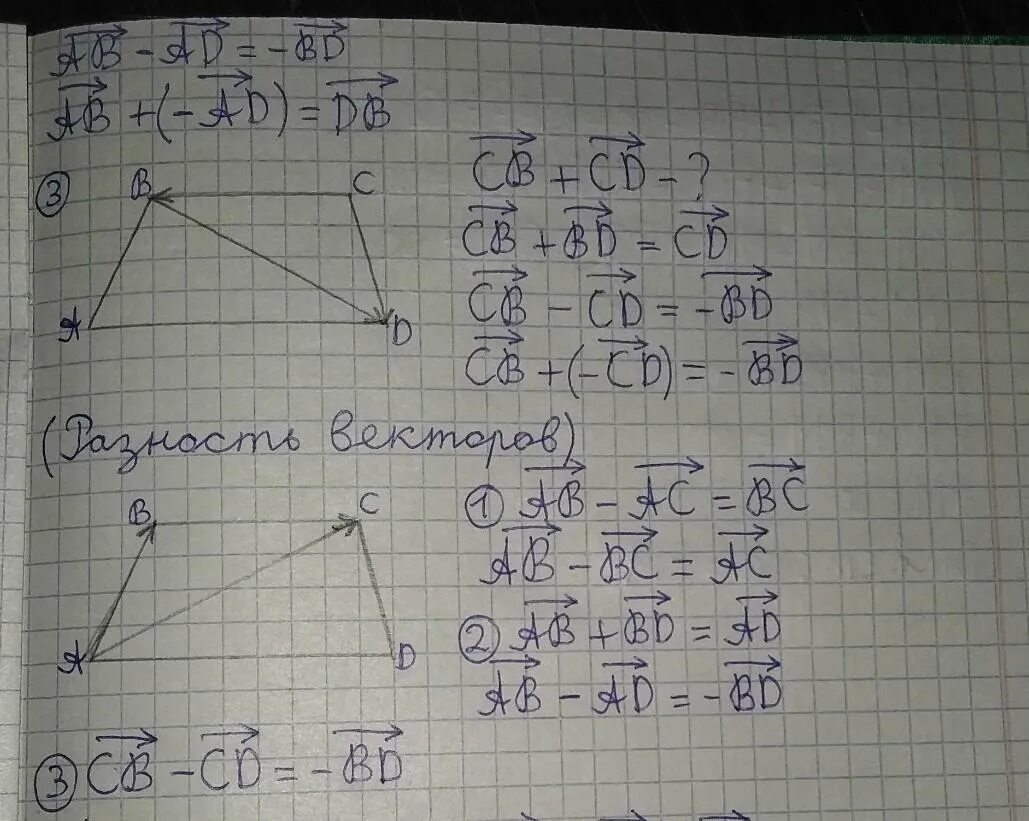 AB − AD = −BD
AB + (−AD) = DB
③
B
C
A
D
CB + CD − ?
CB + BD = CD
CB − CD = −BD
CB + (−CD) = −BD
(Разность векторов)
B
C
A
D
① AB − AC = BC
AB − BC = AC
② AB + BD = AD
AB − AD = −BD
③ CB − CD = −BD